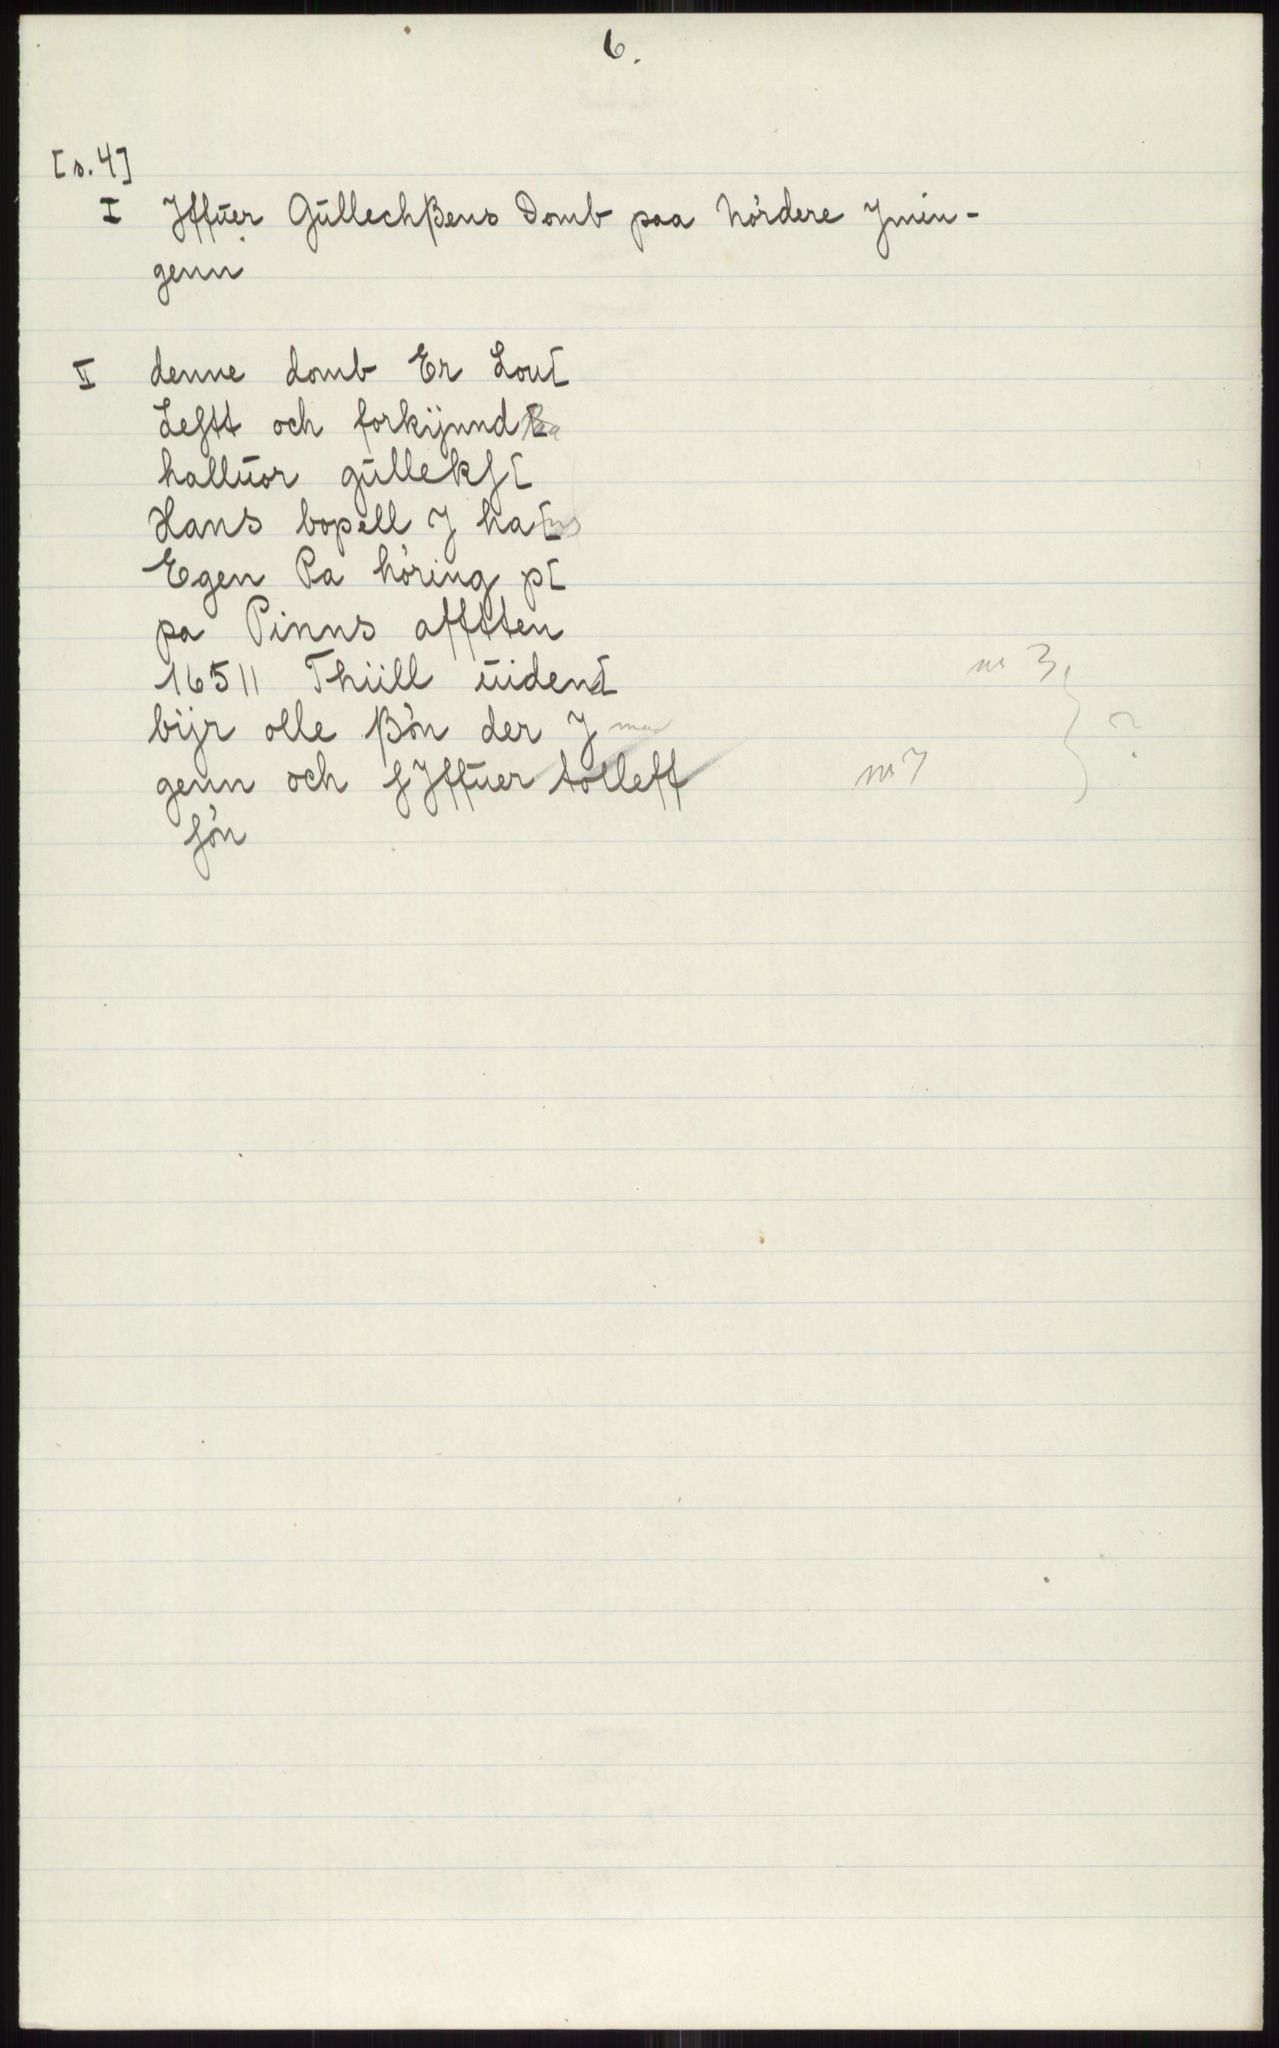 6.
[s. 4]
I Jffŭer Gŭllechßens Domb paa Nórdere Jmin-
genn
II denne domb Er Lou[
Leſtt och forkÿnnd[
hallŭor gŭllekſ[
Hans bopell J ha[ns
Egen Pa hóring p[
pa Pinns affften
16511 Thiill ŭiden[
bÿr olle ßón der J
genn och ſJffŭer tolleff
ſón
nr 3.
nr 7
?